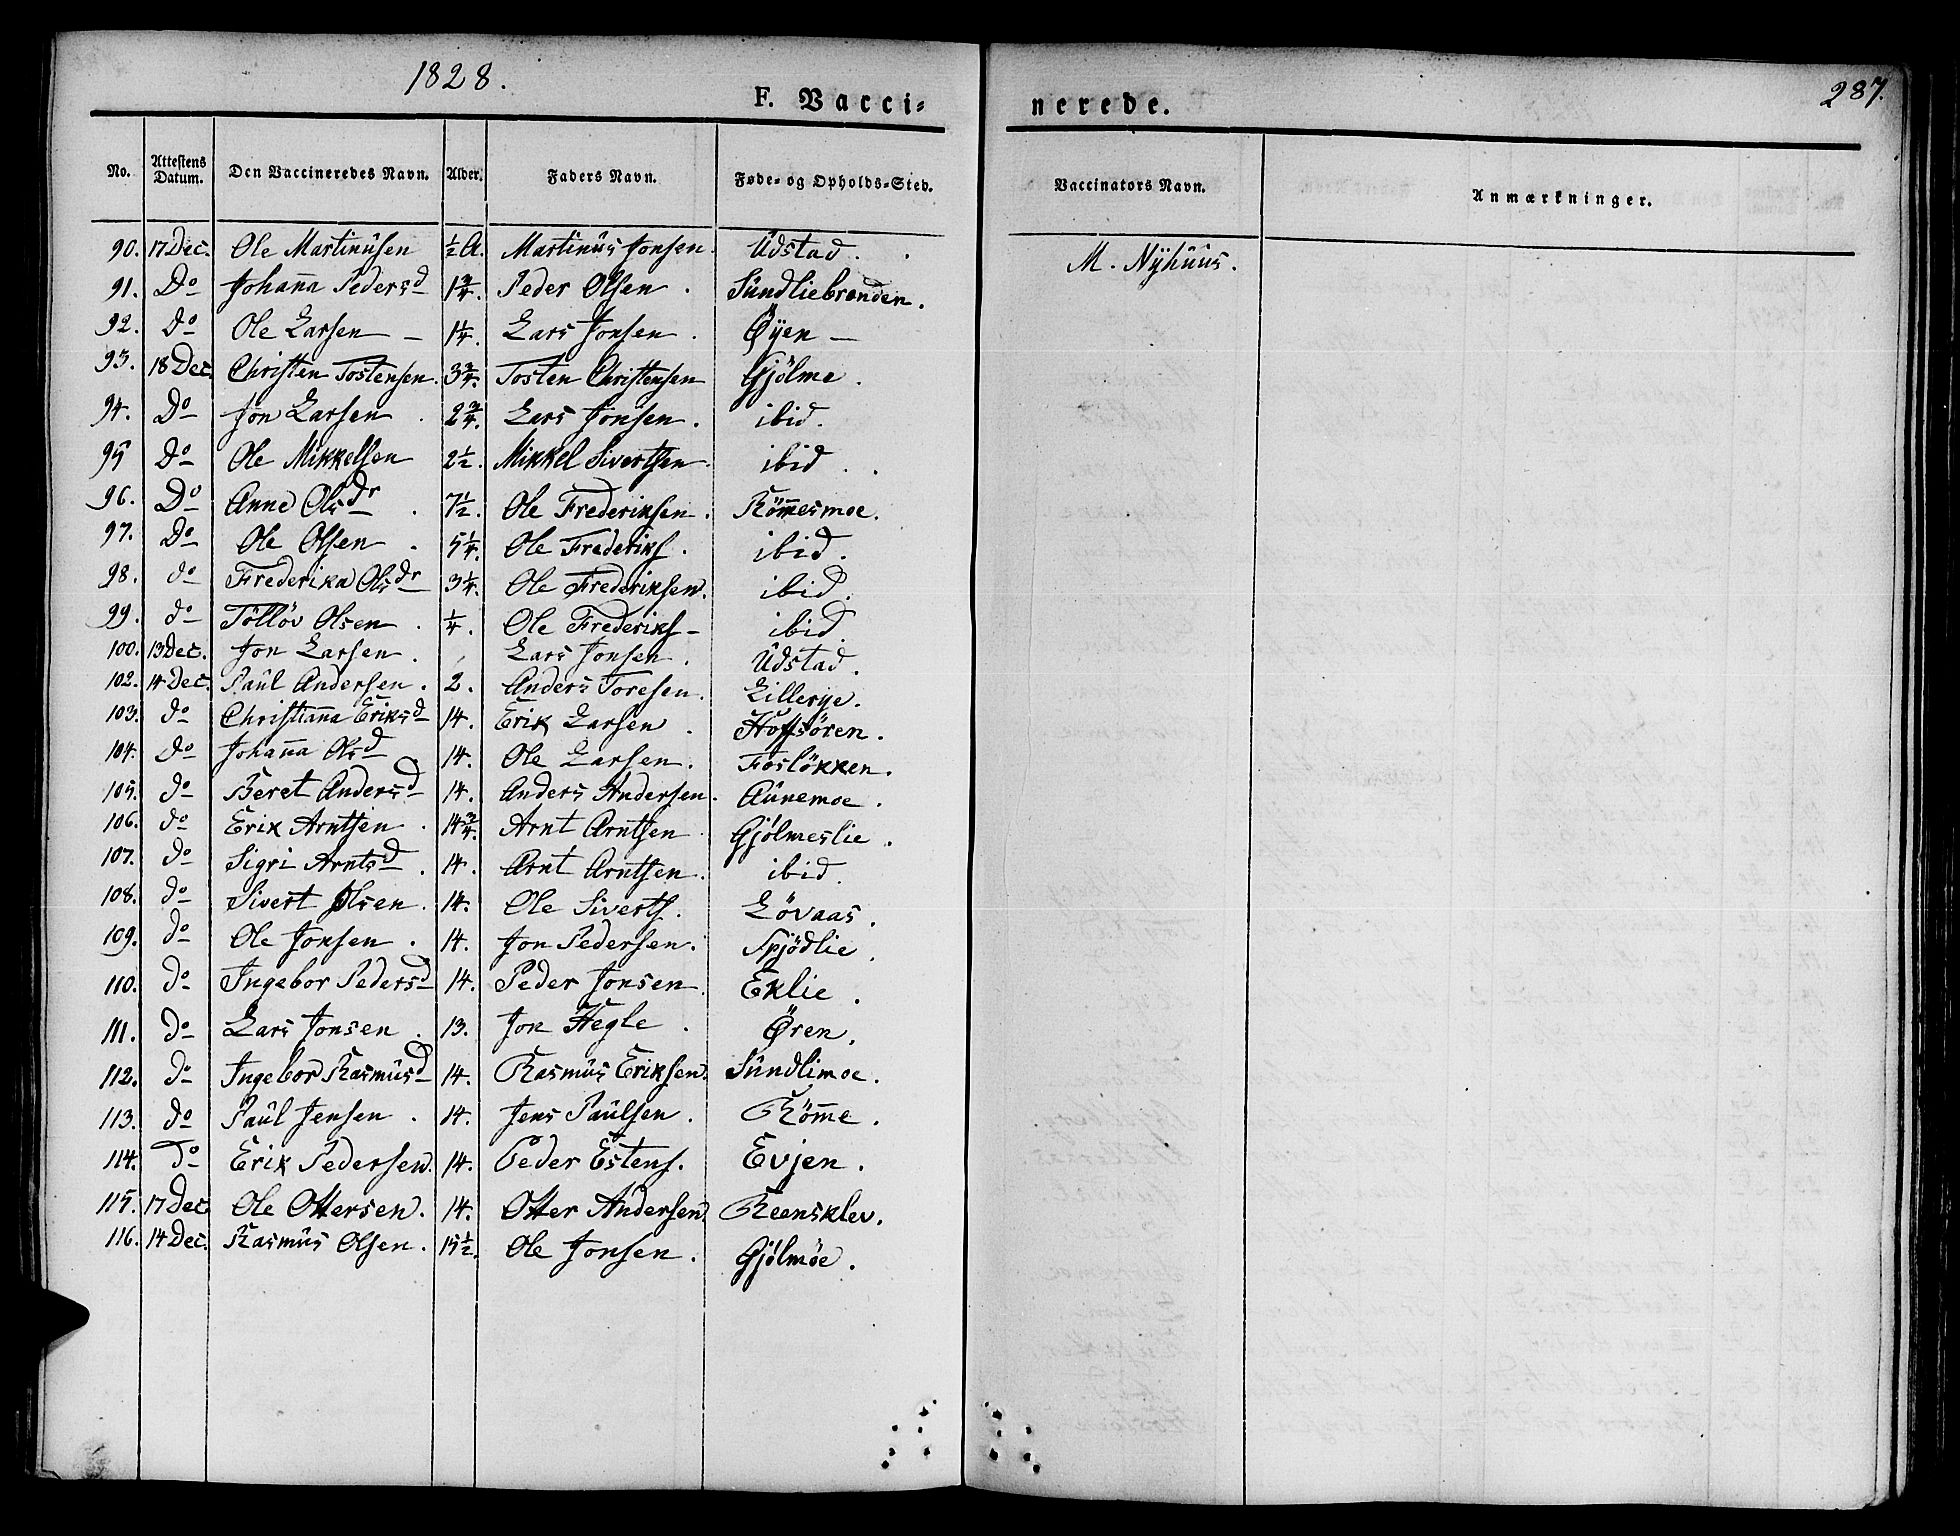 1828.
287.
F. Vacci-
nerede.
No. Attestens Datum. Den Vaccineredes Navn. Alder. Faders Navn. Føde- og Opholds-Sted. Vaccinators Navn. Anmærkninger.
90. 17 Dec. Ole Martinusen ½ A. Martinus Jonsen. Udstad. M. Nyhuus.
91. Do Johan̄a Pedersd 1¾. Peder Olsen. Sundliebranden.
92. do Ole Larsen 1¼. Lars Jonsen. Øyen
93. 18 Dec. Christen Tostensen. 3¾. Tosten Christensen Gjölme.
94. Do Jon Larsen. 2¾. Lars Jonsen. ibid.
95 Do Ole Mikkelsen 2½. Mikkel Sivertsen. ibid.
96. Do Anne Olsdr. 7½. Ole Frederiksen. Röm̄esmoe.
97. Do Ole Olsen. 5¼. Ole Frederiks. ibid.
98. do Frederika Olsdr 3¼. Ole Frederiksen. ibid.
99. do Tölløv Olsen. ¼. Ole Frederiks ibid.
100. 13 Dec. Jon Larsen. Lars Jonsen. Udstad.
102. 14 Dec. Paul Andersen. 2. Anders Toresen. Lillerye.
103. do Christian̄a Eriksd 14. Erik Larsen. Hoffsören.
104. do Johan̄a Olsd 14. Ole Larsen. Foslökken.
105. do Beret Andersd 14. Anders Andersen. Aunemoe.
106. do Erik Arntsen. 14¾. Arnt Arntsen. Gjölmeslie.
107. do Sigri Arntsd. 14. Arnt Arntsen. ibid.
108. do Sivert Olsen. 14. Ole Siverts. Lövaas.
109. do Ole Jonsen. 14. Jon Pedersen. Spjödlie.
110. do Ingebor Pedersd 14. Peder Jonsen. Eklie.
111. do Lars Jonsen. 13. Jon Hegle. Ören.
112. do Ingebor Rasmusd 14. Rasmus Eriksen. Sundlimoe.
113. do Paul Jensen. 14. Jens Paulsen. Röm̄e.
114. do Erik Pedersen. 14. Peder Estens. Evjen.
115. 17 Dec Ole Ottersen. 14. Otter Andersen. Reensklev.
116. 14 Dec. Rasmus Olsen. 15½. Ole Jonsen. Gjölmöe.